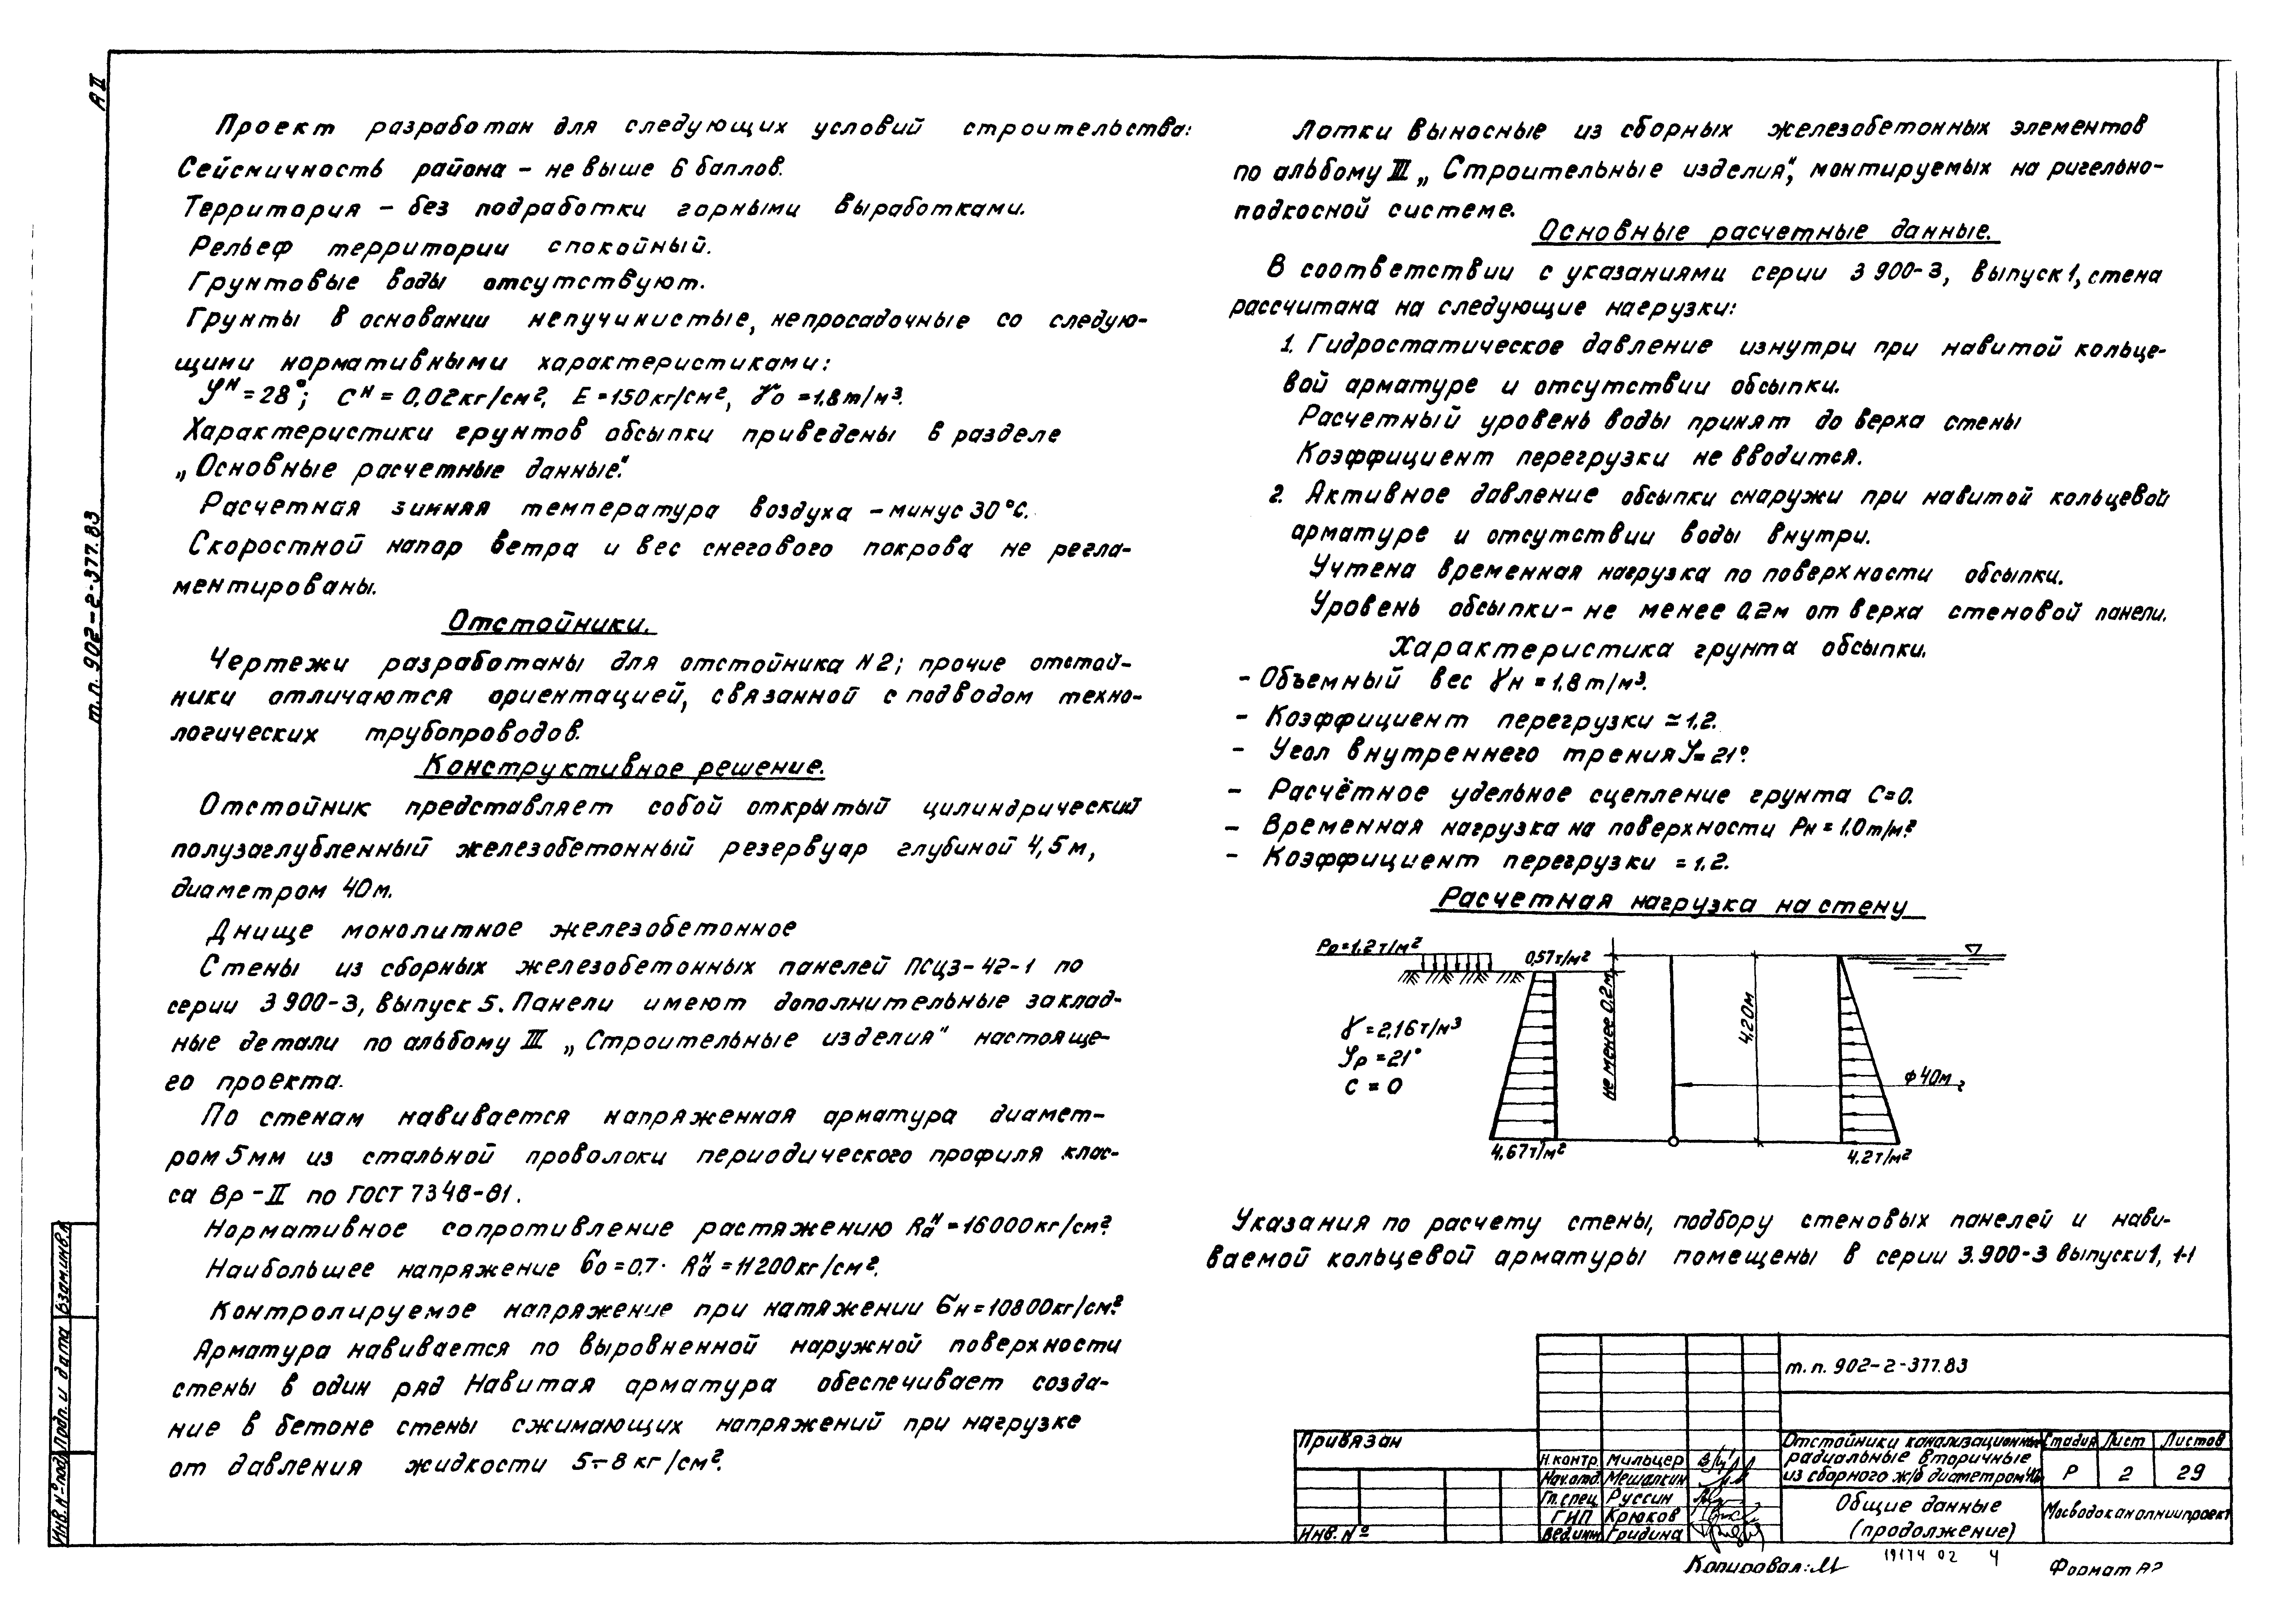 А II
Проект разработан для следующих условий строительства:
Сейсмичность района – не выше 6 баллов.
Территория – без подработки горными выработками.
Рельеф территории спокойный.
Грунтовые воды отсутствуют.
Грунты в основании непучинистые, непросадочные со следую-
щими нормативными характеристиками:
φᴴ = 28°; Cᴴ = 0,02кг/см², E = 150кг/см², γо = 1,8т/м³.
Характеристики грунтов обсыпки приведены в разделе
„Основные расчетные данные".
Расчетная зимняя температура воздуха – минус 30°С.
Скоростной напор ветра и вес снегового покрова не регла-
ментированы.
Отстойники.
Чертежи разработаны для отстойника N2; прочие отстой-
ники отличаются ориентацией, связанной с подводом техно-
логических трубопроводов.
Конструктивное решение.
Отстойник представляет собой открытый цилиндрический
полузаглубленный железобетонный резервуар глубиной 4,5м,
диаметром 40м.
Днище монолитное железобетонное
Стены из сборных железобетонных панелей ПСЦ3-42-1 по
серии 3 900-3, выпуск 5. Панели имеют дополнительные заклад-
ные детали по альбому III „Строительные изделия" настояще-
го проекта.
По стенам навивается напряженная арматура диамет-
ром 5мм из стальной проволоки периодического профиля клас-
са Вр-II по ГОСТ 7348-81.
Нормативное сопротивление растяжению Rаᴴ = 16000кг/см²
Наибольшее напряжение бо = 0,7 · Rаᴴ = 11200кг/см².
Контролируемое напряжение при натяжении бн = 10800кг/см²
Арматура навивается по выровненной наружной поверхности
стены в один ряд Навитая арматура обеспечивает созда-
ние в бетоне стены сжимающих напряжений при нагрузке
от давления жидкости 5÷8 кг/см².
Лотки выносные из сборных железобетонных элементов
по альбому III „Строительные изделия", монтируемых на ригельно-
подкосной системе.
Основные расчетные данные.
В соответствии с указаниями серии 3 900-3, выпуск 1, стена
рассчитана на следующие нагрузки:
1. Гидростатическое давление изнутри при навитой кольце-
вой арматуре и отсутствии обсыпки.
Расчетный уровень воды принят до верха стены
Коэффициент перегрузки не вводится.
2. Активное давление обсыпки снаружи при навитой кольцевой
арматуре и отсутствии воды внутри.
Учтена временная нагрузка по поверхности обсыпки.
Уровень обсыпки – не менее 0,2м от верха стеновой панели.
Характеристика грунта обсыпки.
- Объемный вес γн = 1,8т/м³.
- Коэффициент перегрузки = 1,2.
- Угол внутреннего трения φ = 21°.
- Расчётное удельное сцепление грунта С=0.
- Временная нагрузка на поверхности Рн = 1.0т/м²
- Коэффициент перегрузки = 1,2.
Расчетная нагрузка на стену
Рр=1.2т/м²
0,57т/м²
не менее 0.2м
4,20м
γ = 2,16т/м³
φр = 21°
С = 0
ф 40м
4,67т/м²
4,2т/м²
Указания по расчету стены, подбору стеновых панелей и нави-
ваемой кольцевой арматуры помещены в серии 3.900-3 выпуски 1, 1-1
т.п. 902-2-377.83
Взам.инв.н
Подп. и дата
Инв. № под
Привязан
Инв. №
Н.контр. Мильцер
Нач.отд. Мешалкин
Гл.спец. Руссин
ГИП Крюков
Вед.инж. Гридина
т.п. 902-2-377.83
Отстойники канализационные
радиальные вторичные
из сборного ж/б диаметром 40м
Стадия Лист Листов
Р 2 29
Общие данные
(продолжение)
Мосводоканалниипроект
19174 02 4
Копировал:
Формат А2